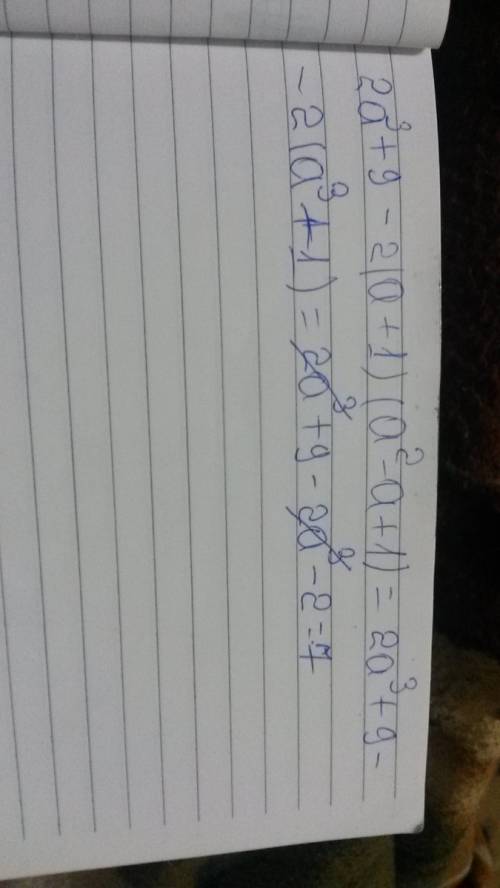 2a³ + 9 - 2(a + 1)(a² - a + 1) = 2a³ + 9 -
- 2(a³ + 1) = 2a³ + 9 - 2a³ - 2 = 7